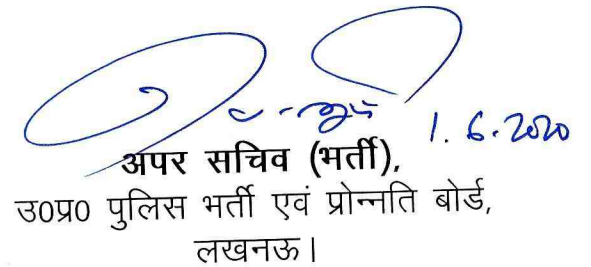 1.6.2020
अपर सचिव (भर्ती),
उ०प्र० पुलिस भर्ती एवं प्रोन्नति बोर्ड,
लखनऊ।